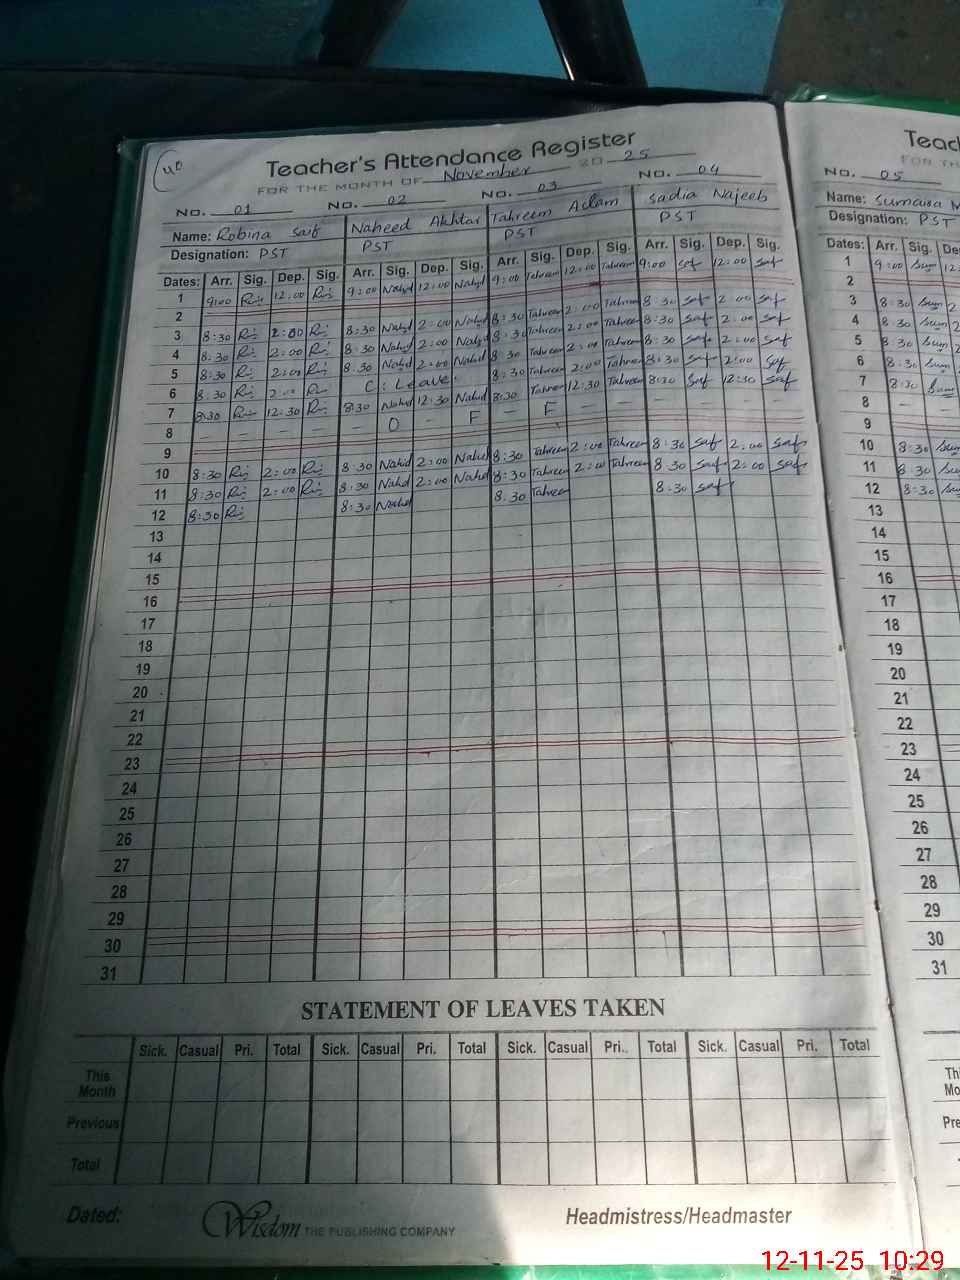 40
Teacher's Attendance Register
FOR THE MONTH OF November 20 25
No. 01 No. 02 No. 03 No. 04
Name: Robina Saif Naheed Akhtar Tahreem Aslam Sadia Najeeb
Designation: PST PST PST PST
Dates: Arr. Sig. Dep. Sig. Arr. Sig. Dep. Sig. Arr. Sig. Dep. Sig. Arr. Sig. Dep. Sig.
1 9:00 12:00 9:00 Nahd 12:00 Nahd 9:00 Tahreem 12:00 Tahreem 9:00 Saf 12:00 Saf
2
3 8:30 2:00 8:30 Nahd 2:00 Nahd 8:30 Tahreem 2:00 Tahreem 8:30 Saf 2:00 Saf
4 8:30 2:00 8:30 Nahd 2:00 Nahd 8:30 Tahreem 2:00 Tahreem 8:30 Saf 2:00 Saf
5 8:30 2:00 8:30 Nahd 2:00 Nahd 8:30 Tahreem 2:00 Tahreem 8:30 Saf 2:00 Saf
6 8:30 2:00 C: Leave. 8:30 Tahreem 2:00 Tahreem 8:30 Saf 2:00 Saf
7 8:30 12:30 8:30 Nahd 12:30 Nahd 8:30 Tahreem 12:30 Tahreem 8:30 Saf 12:30 Saf
8 — — — — — O — F — F — — — — — —
9
10 8:30 2:00 8:30 Nahid 2:00 Nahid 8:30 Tahreem 2:00 Tahreem 8:30 Saf 2:00 Saf
11 8:30 2:00 8:30 Nahd 2:00 Nahd 8:30 Tahreem 2:00 Tahreem 8:30 Saf 2:00 Saf
12 8:30 8:30 Nahd 8:30 Tahreem 8:30 Saf
13
14
15
16
17
18
19
20
21
22
23
24
25
26
27
28
29
30
31
STATEMENT OF LEAVES TAKEN
Sick. Casual Pri. Total Sick. Casual Pri. Total Sick. Casual Pri. Total Sick. Casual Pri. Total
This
Month
Previous
Total
Dated: Wisdom THE PUBLISHING COMPANY Headmistress/Headmaster
No. 05
Name: Sumaira
Designation: PST
Dates: Arr. Sig.
1 9:00 Sum
2
3 8:30 Sum
4 8:30 Sum
5 8:30 Sum
6 8:30 Sum
7 8:30 Sum
8 — —
9
10 8:30 Sum
11 8:30 Sum
12 8:30 Sum
13
14
15
16
17
18
19
20
21
22
23
24
25
26
27
28
29
30
31
12-11-25 10:29